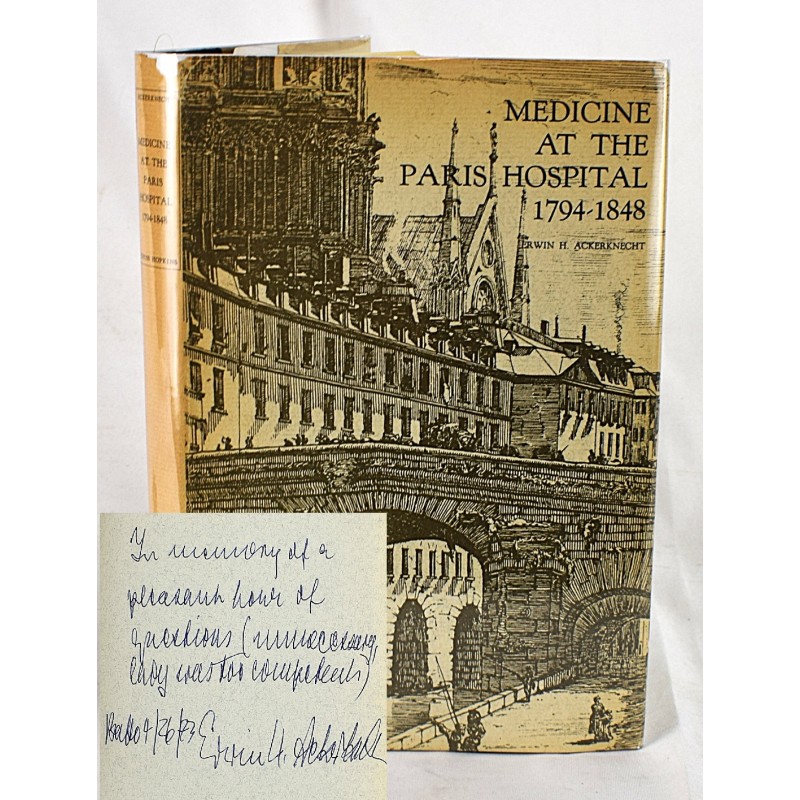 ACKERKNECHT
MEDICINE
AT THE
PARIS
HOSPITAL
1794-1848
JOHNS HOPKINS
MEDICINE
AT THE
PARIS HOSPITAL
1794-1848
ERWIN H. ACKERKNECHT
In memory of a
pleasant hour of
questions (unnecessary,
lady was too competent)
Balto 9/26/83 Erwin H. Ackerknecht